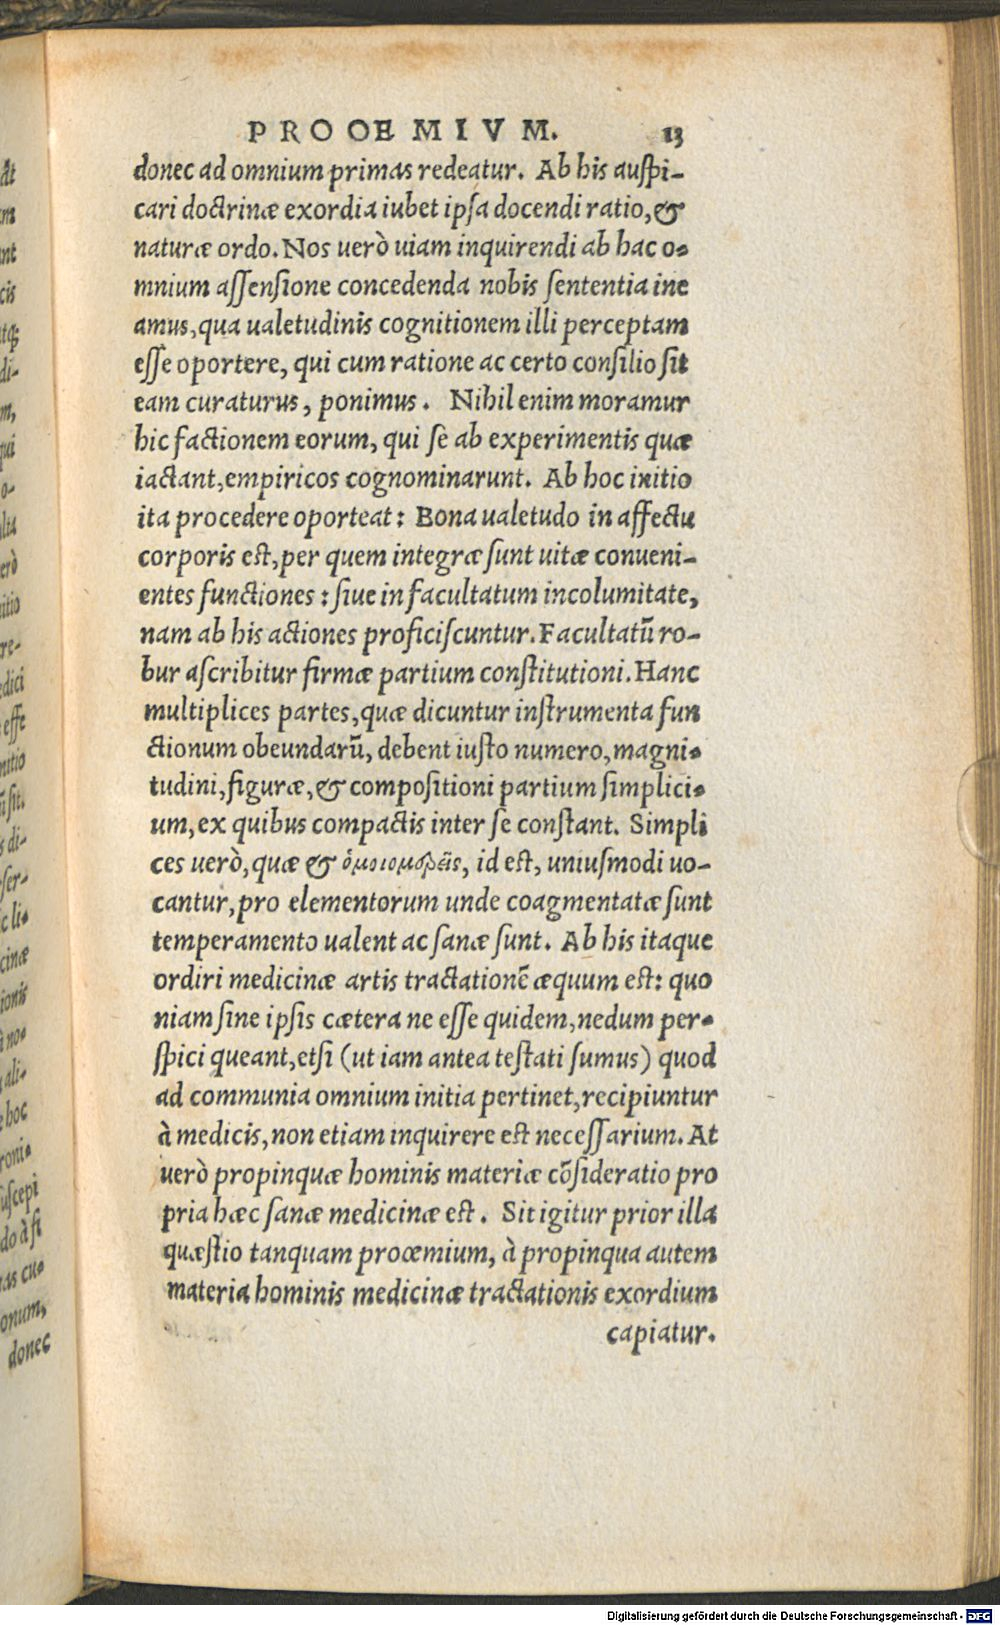 PROOEMIVM. 13
donec ad omnium primas redeatur. Ab his auſpi-
cari doctrinæ exordia iubet ipſa docendi ratio, &
naturæ ordo. Nos uerò uiam inquirendi ab hac o-
mnium aſſenſione concedenda nobis ſententia ine
amus, qua ualetudinis cognitionem illi perceptam
eſſe oportere, qui cum ratione ac certo conſilio ſit
eam curaturus, ponimus. Nihil enim moramur
hic factionem eorum, qui ſe ab experimentis quæ
iactant, empiricos cognominarunt. Ab hoc initio
ita procedere oporteat: Bona ualetudo in affectu
corporis eſt, per quem integræ ſunt uitæ conueni-
entes functiones: ſiue in facultatum incolumitate,
nam ab his actiones proficiſcuntur. Facultatū ro-
bur aſcribitur firmæ partium conſtitutioni. Hanc
multiplices partes, quæ dicuntur inſtrumenta fun
ctionum obeundarū, debent iuſto numero, magni-
tudini, figuræ, & compoſitioni partium ſimplici-
um, ex quibus compactis inter ſe conſtant. Simpli
ces uerò, quæ & ὁμοιομερεῖς, id eſt, uniuſmodi uo-
cantur, pro elementorum unde coagmentatæ ſunt
temperamento ualent ac ſanæ ſunt. Ab his itaque
ordiri medicinæ artis tractationē æquum eſt: quo
niam ſine ipſis cætera ne eſſe quidem, nedum per-
ſpici queant, etſi (ut iam antea teſtati ſumus) quod
ad communia omnium initia pertinet, recipiuntur
à medicis, non etiam inquirere eſt neceſſarium. At
uerò propinquæ hominis materiæ cōſideratio pro
pria hæc ſanæ medicinæ eſt. Sit igitur prior illa
quæſtio tanquam prooemium, à propinqua autem
materia hominis medicinæ tractationis exordium
capiatur.
m
cis
di-
m,
qui
o-
erò
re-
dici
eſſe
ſit.
di-
ſer-
li-
cinæ
ionis
no-
ali-
hoc
ſuſcepi
do à ſi
cu-
onum,
donec
Digitalisierung gefördert durch die Deutsche Forschungsgemeinschaft - DFG